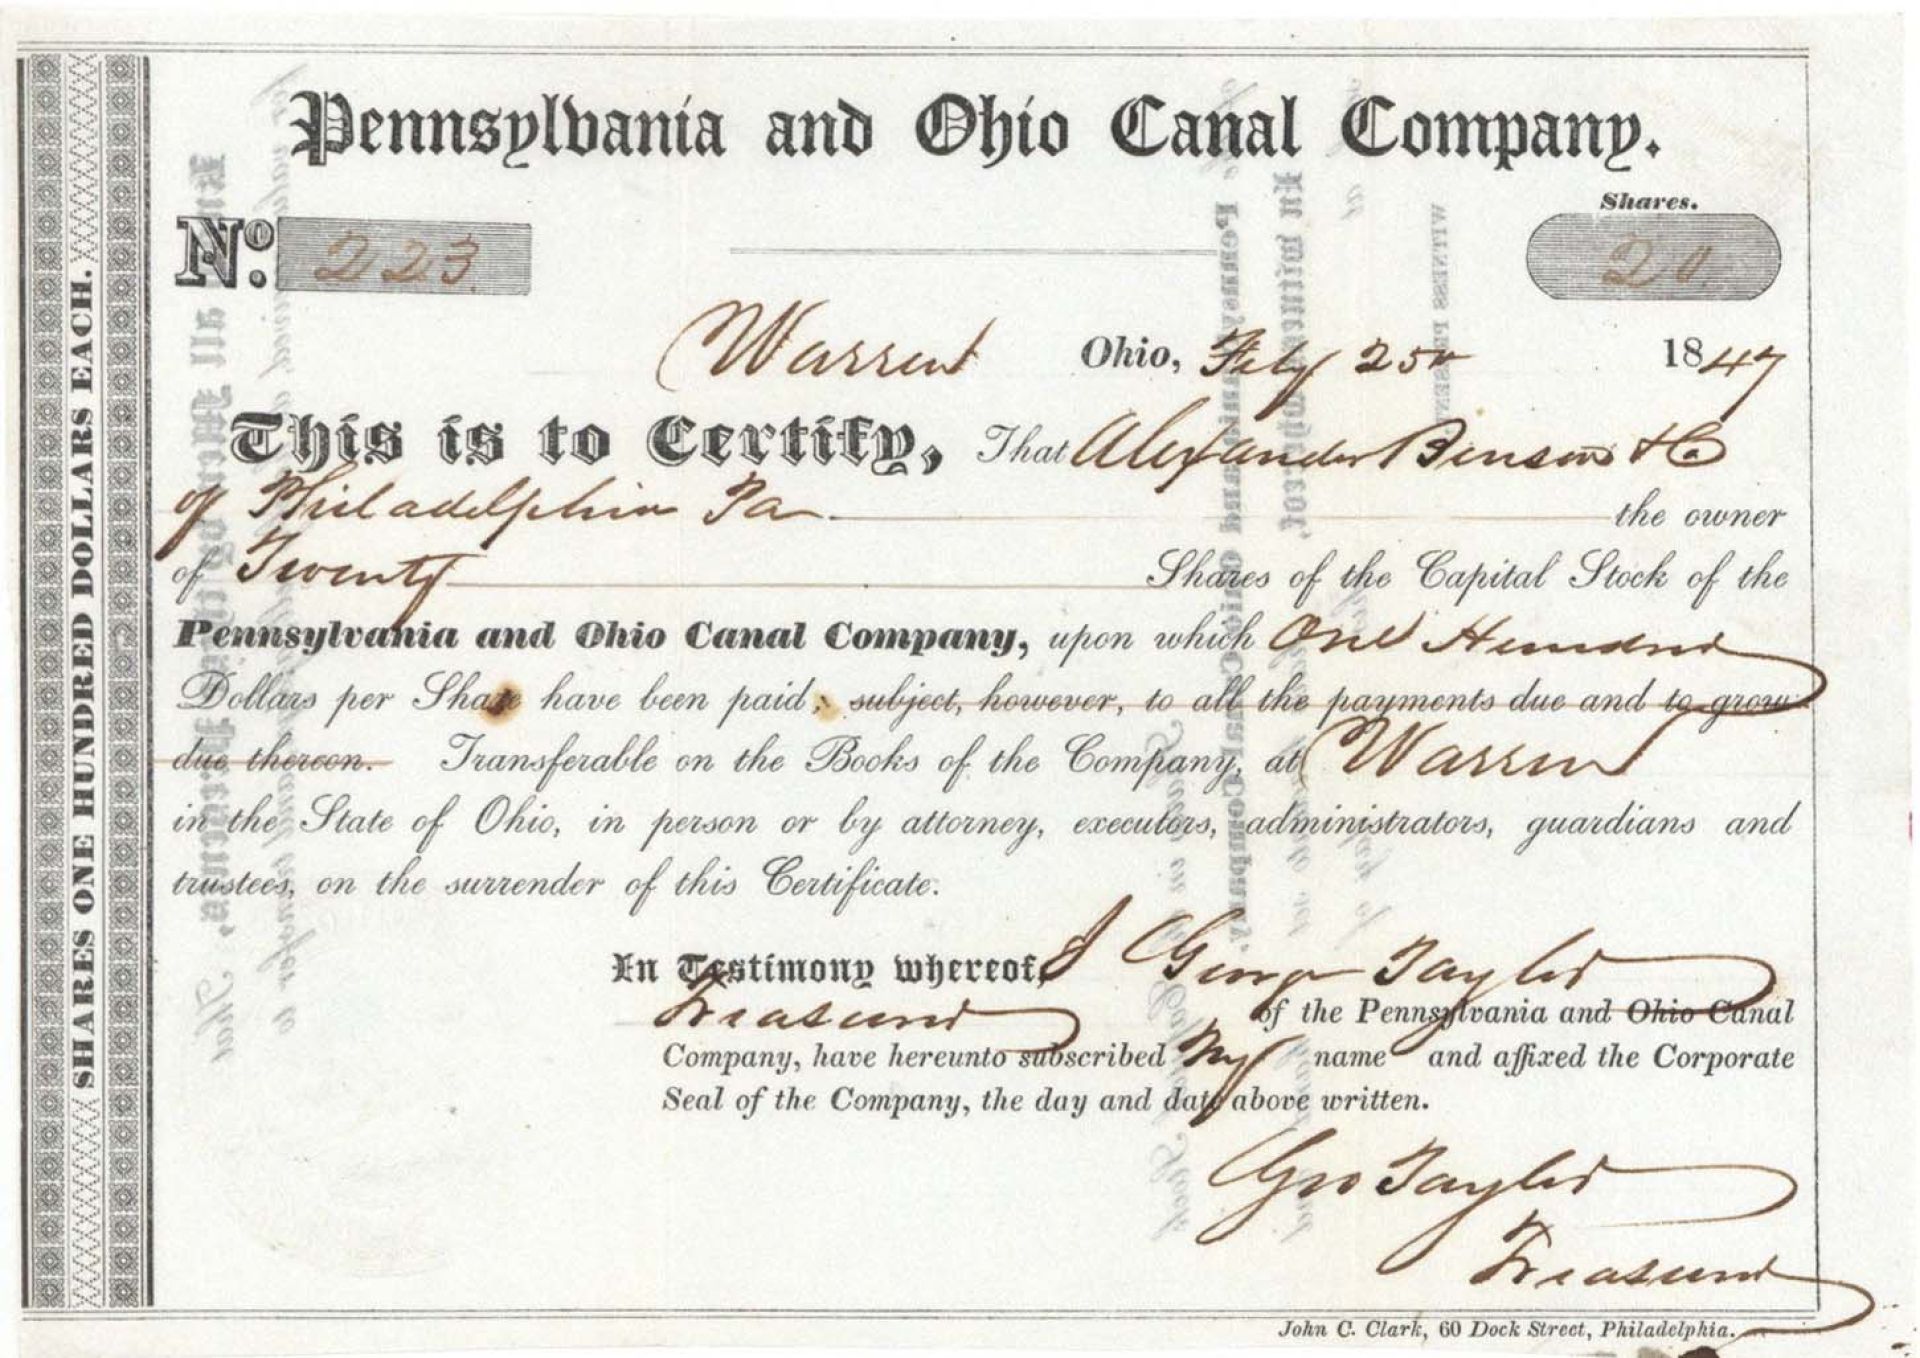 Pennsylvania and Ohio Canal Company.
Shares.
No. 223.
20.
Warren Ohio, Feby 25th 1847
This is to Certify, That Alexander Benson & Co
of Philadelphia Pa the owner
of Twenty Shares of the Capital Stock of the
Pennsylvania and Ohio Canal Company, upon which One Hundred
Dollars per Share have been paid; subject, however, to all the payments due and to grow
due thereon. Transferable on the Books of the Company, at Warren
in the State of Ohio, in person or by attorney, executors, administrators, guardians and
trustees, on the surrender of this Certificate.
In Testimony whereof, I George Tayler
Treasurer of the Pennsylvania and Ohio Canal
Company, have hereunto subscribed my name and affixed the Corporate
Seal of the Company, the day and date above written.
Geo Tayler
Treasurer
John C. Clark, 60 Dock Street, Philadelphia.
SHARES ONE HUNDRED DOLLARS EACH.